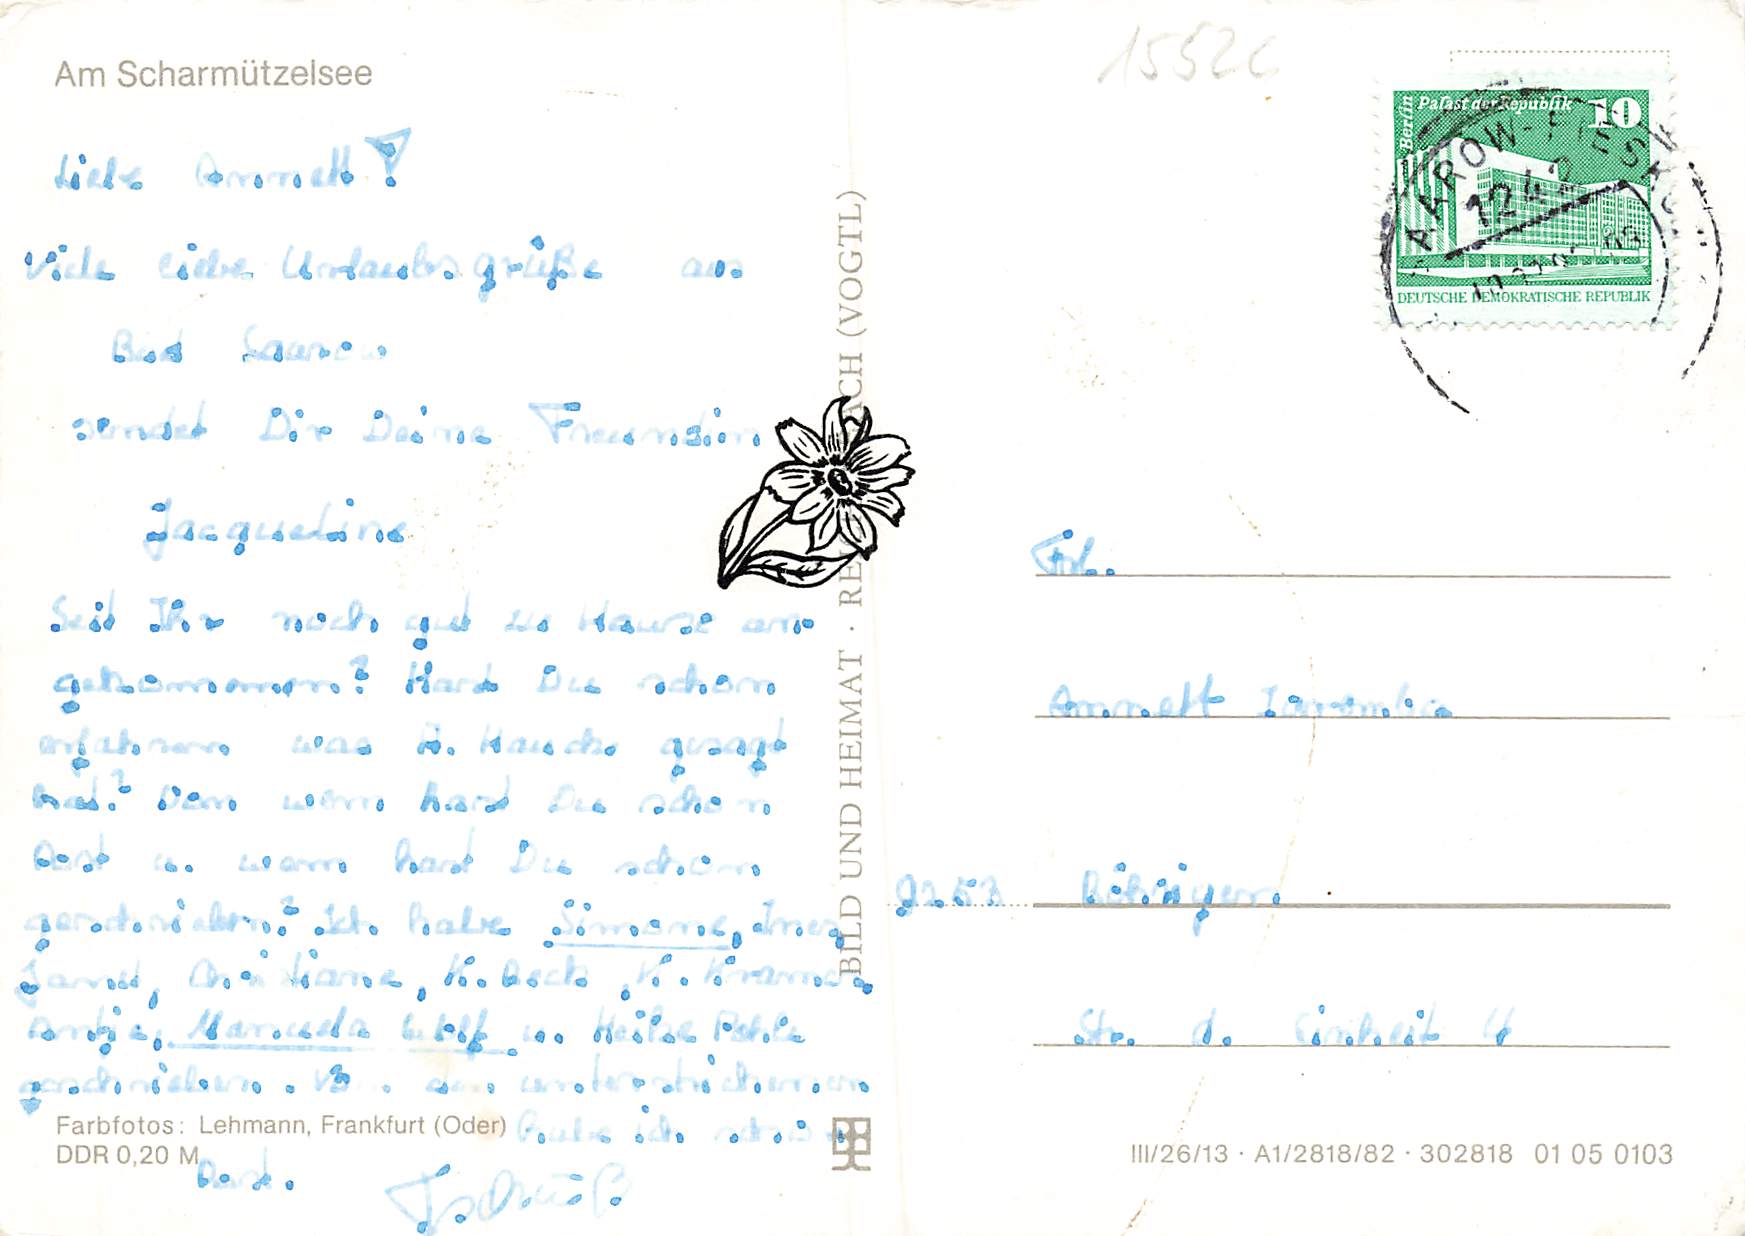 Am Scharmützelsee
15526
Liebe Annett!
Viele liebe Urlaubsgrüße aus
Bad Saarow
sendet Dir Deine Freundin
Jacqueline
Seit Ihr noch gut zu Hause an
gekommen? Hast Du schon
erfahren was H. Hauck gesagt
hat? Von wem hast Du schon
Post u. wem hast Du schon
geschrieben? Ich habe Simone, Ines
Janet, Christiane, K. Beck, K.
Antje, Manuela Wolf u. Heike
geschrieben. Von den unterstrichenen
habe ich schon
Post. Tschüß
Farbfotos: Lehmann, Frankfurt (Oder)
DDR 0,20 M
BILD UND HEIMAT · REICHENBACH (VOGTL)
Berlin
Palast der Republik 10
DEUTSCHE DEMOKRATISCHE REPUBLIK
SAAROW-PIESKOW
124
Frl.
Annett
9253 Röhrigen
Str. d. Einheit 4
III/26/13 · A1/2818/82 · 302818 01 05 0103